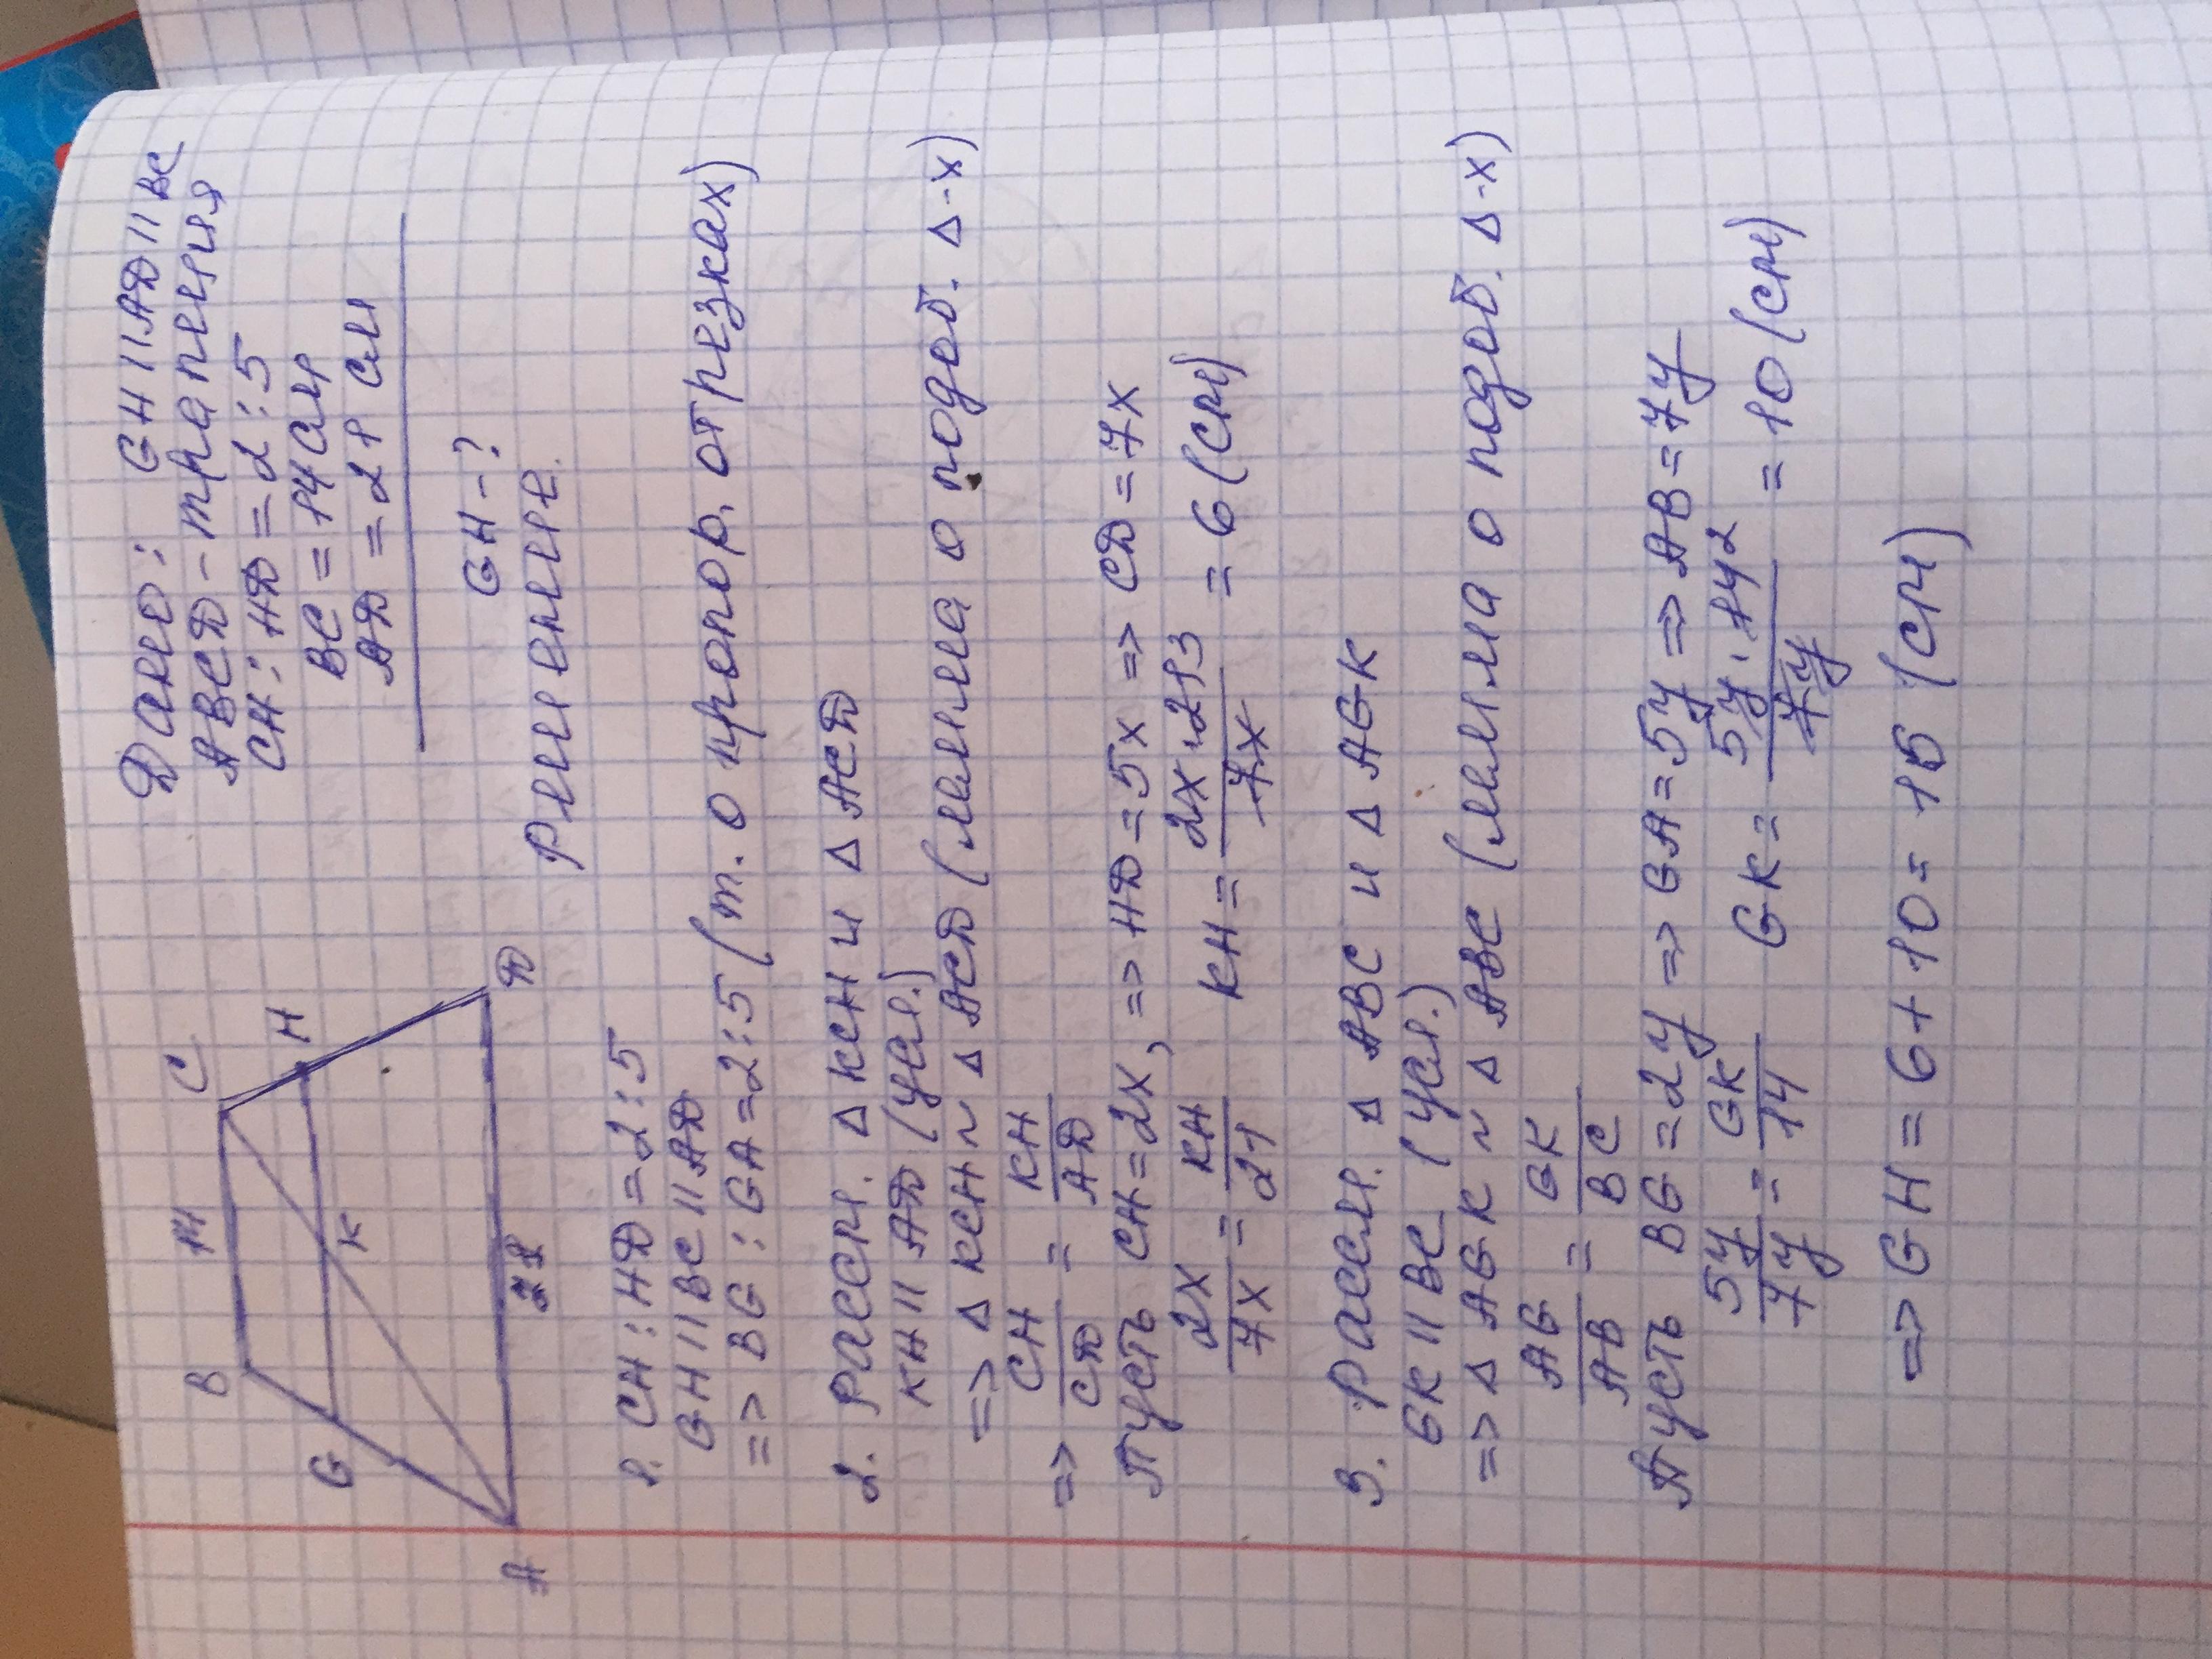 B 14 C
G K H
A 21 D
Дано: GH||AD||BC
ABCD - трапеция
CH:HD=2:5
BC=14 см
AD=21 см
GH-?
Решение.
1. CH:HD=2:5
GH||BC||AD
=> BG:GA=2:5 (т. о пропор. отрезках)
2. Рассм. Δ KCH и Δ ACD
KH||AD (усл.)
=> Δ KCH ~ Δ ACD (лемма о подоб. Δ-х)
=> CH/CD = KH/AD
Пусть CH=2x, => HD=5x => CD=7x
2x/7x = KH/21 KH= 2x·21 3/7x = 6 (см)
3. Рассм. Δ ABC и Δ AGK
GK||BC (усл.)
=> Δ AGK ~ Δ ABC (лемма о подоб. Δ-х)
AG/AB = GK/BC
Пусть BG=2y => GA=5y => AB=7y
5y/7y = GK/14 GK= 5y·14 2/7y = 10 (см)
=> GH=6+10=16 (см)